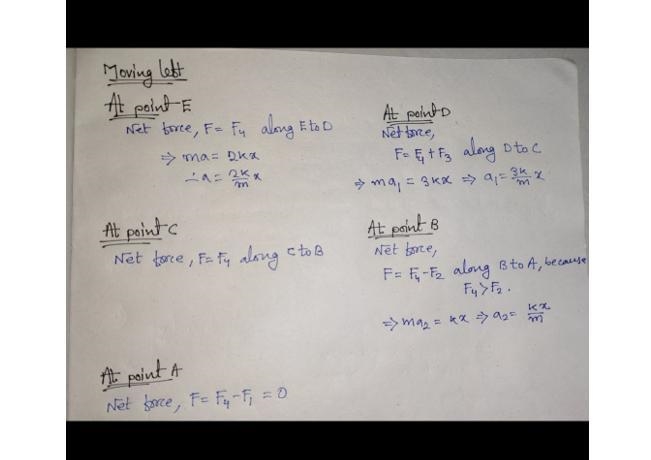 Moving left
At point E
Net force, F = F4 along E to D
⇒ ma = 2kx
∴ a = 2k/m x
At point D
Net force,
F = F4 + F3 along D to C
⇒ ma1 = 3kx ⇒ a1 = 3k/m x
At point C
Net force, F = F4 along C to B
At point B
Net force,
F = F4 - F2 along B to A, because
F4 > F2.
⇒ ma2 = kx ⇒ a2 = kx/m
At point A
Net force, F = F4 - F1 = 0